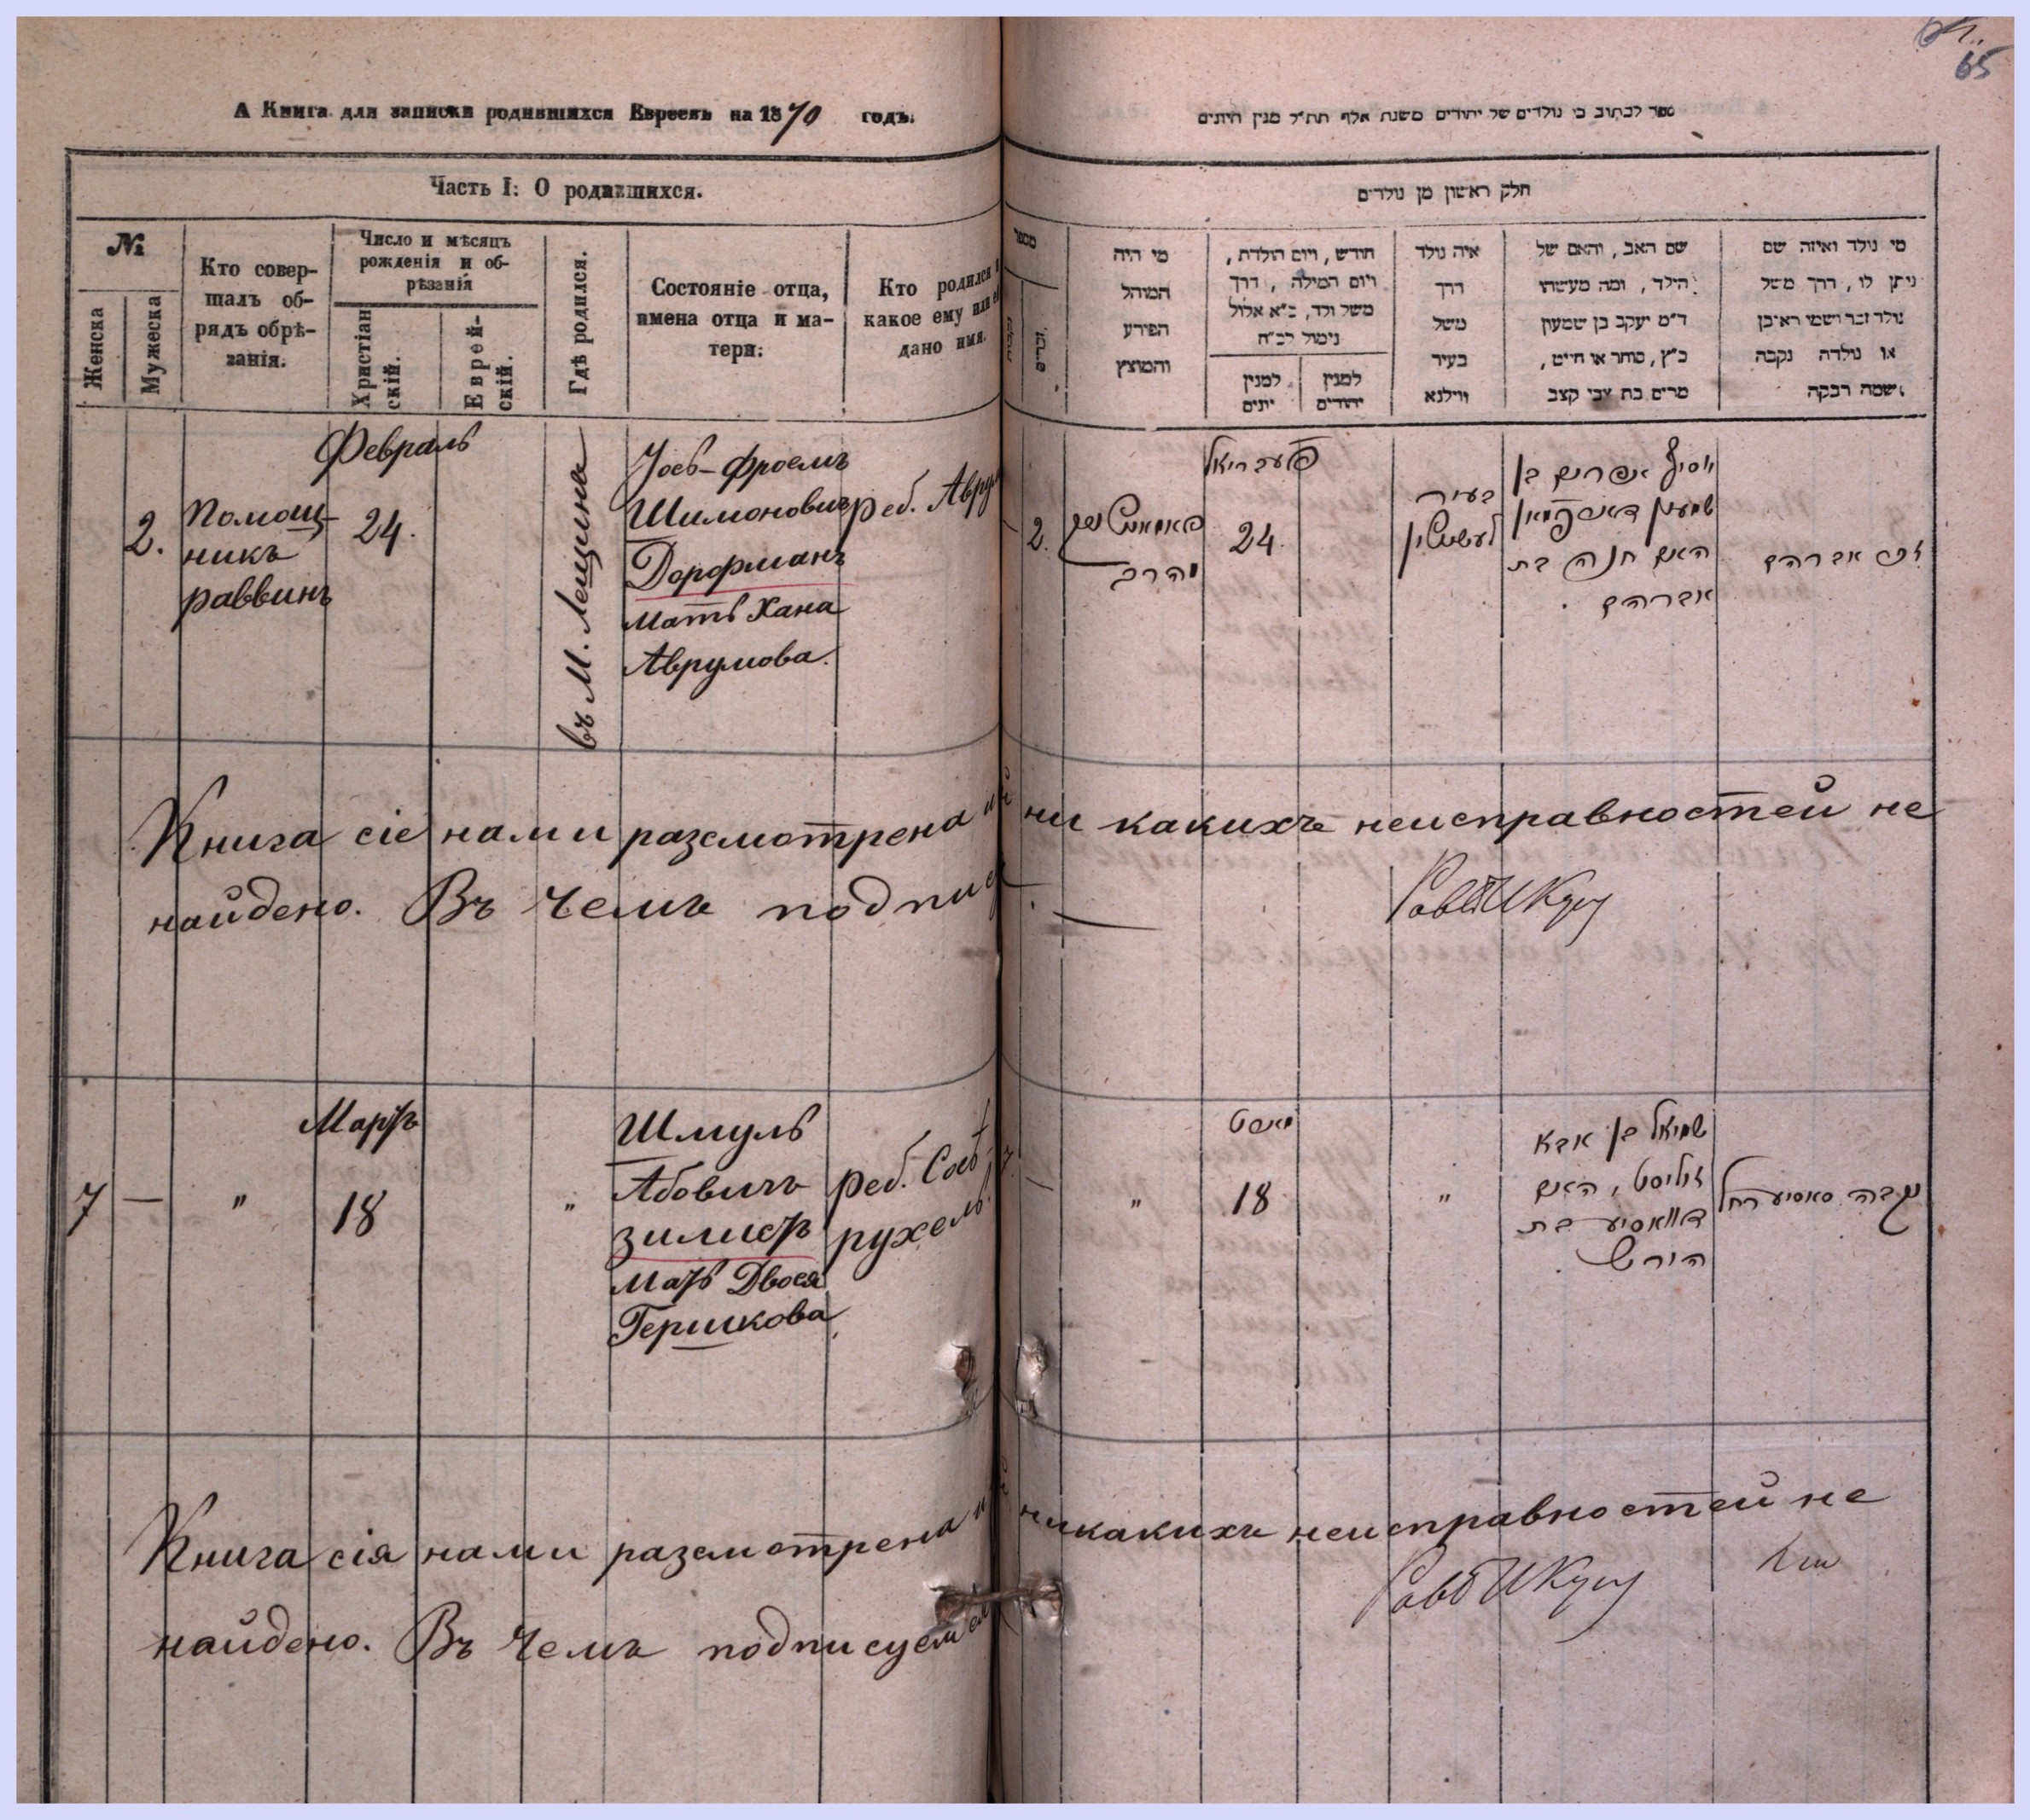 65
А Книга для записки родившихся Евреевъ на 1870 годъ.
Часть I: О родившихся.
№
Женска
Мужеска
Кто совер-
шалъ об-
рядъ обрѣ-
занія.
Число и мѣсяцъ
рожденія и об-
рѣзанія
Христіан
скій.
Еврей-
скій.
Гдѣ родился.
Состояніе отца,
имена отца и ма-
тери.
Кто родился и
какое ему или ей
дано имя.
Февраль
2.
Помощ-
никъ
раввинъ
24.
въ М. Лещинъ
Іось-Фроемъ
Шимоновичъ
Дорфманъ
мать Хана
Аврумова.
реб. Аврум
Книга сіе нами разсмотрена и
найдено. Въ чемъ подпис
Мартъ
7 —
"
18
"
Шмуль
Абовичъ
Зилистъ
мать Двося
Гершкова
реб. Сось-
рухель
Книга сія нами разсмотрена и
найдено. Въ чемъ подписуемся
ספר לכתוב בו נולדים של יהודים משנת אלף תת״ל מנין היונים
חלק ראשון מן נולדים
מי נולד ואיזה שם
ניתן לו, דרך משל
נולד זכר ושמו ראובן
או נולדה נקבה
ושמה רבקה
שם האב, והאם של
הילד, ומה מעשהו
ד״מ יעקב בן שמעון
כ״ץ, סוחר או חייט,
מרים בת צבי קצב
איה נולד
דרך
משל
בעיר
ווילנא
חודש, ויום הולדת,
ויום המילה, דרך
משל ולד, כ״א אלול
נימול לכ״ח
למנין
יהודים
למנין
יונים
מי היה
המוהל
הפורע
והמוצץ
מספר
נקבות
זכרים
פעבריאל
זכר אברהם
יוסף אפרים בן
שמעון דארפמאן
האם חנה בת
אברהם
בעיר
לעשטשין
24.
פאמאשטשניק
הרב
2.
ни какихъ неисправностей не
מארט
נקבה סאסיע רחל
שמואל בן אבא
זיליסט, האם
דוואסיע בת
הירש
"
18
"
никакихъ неисправностей не